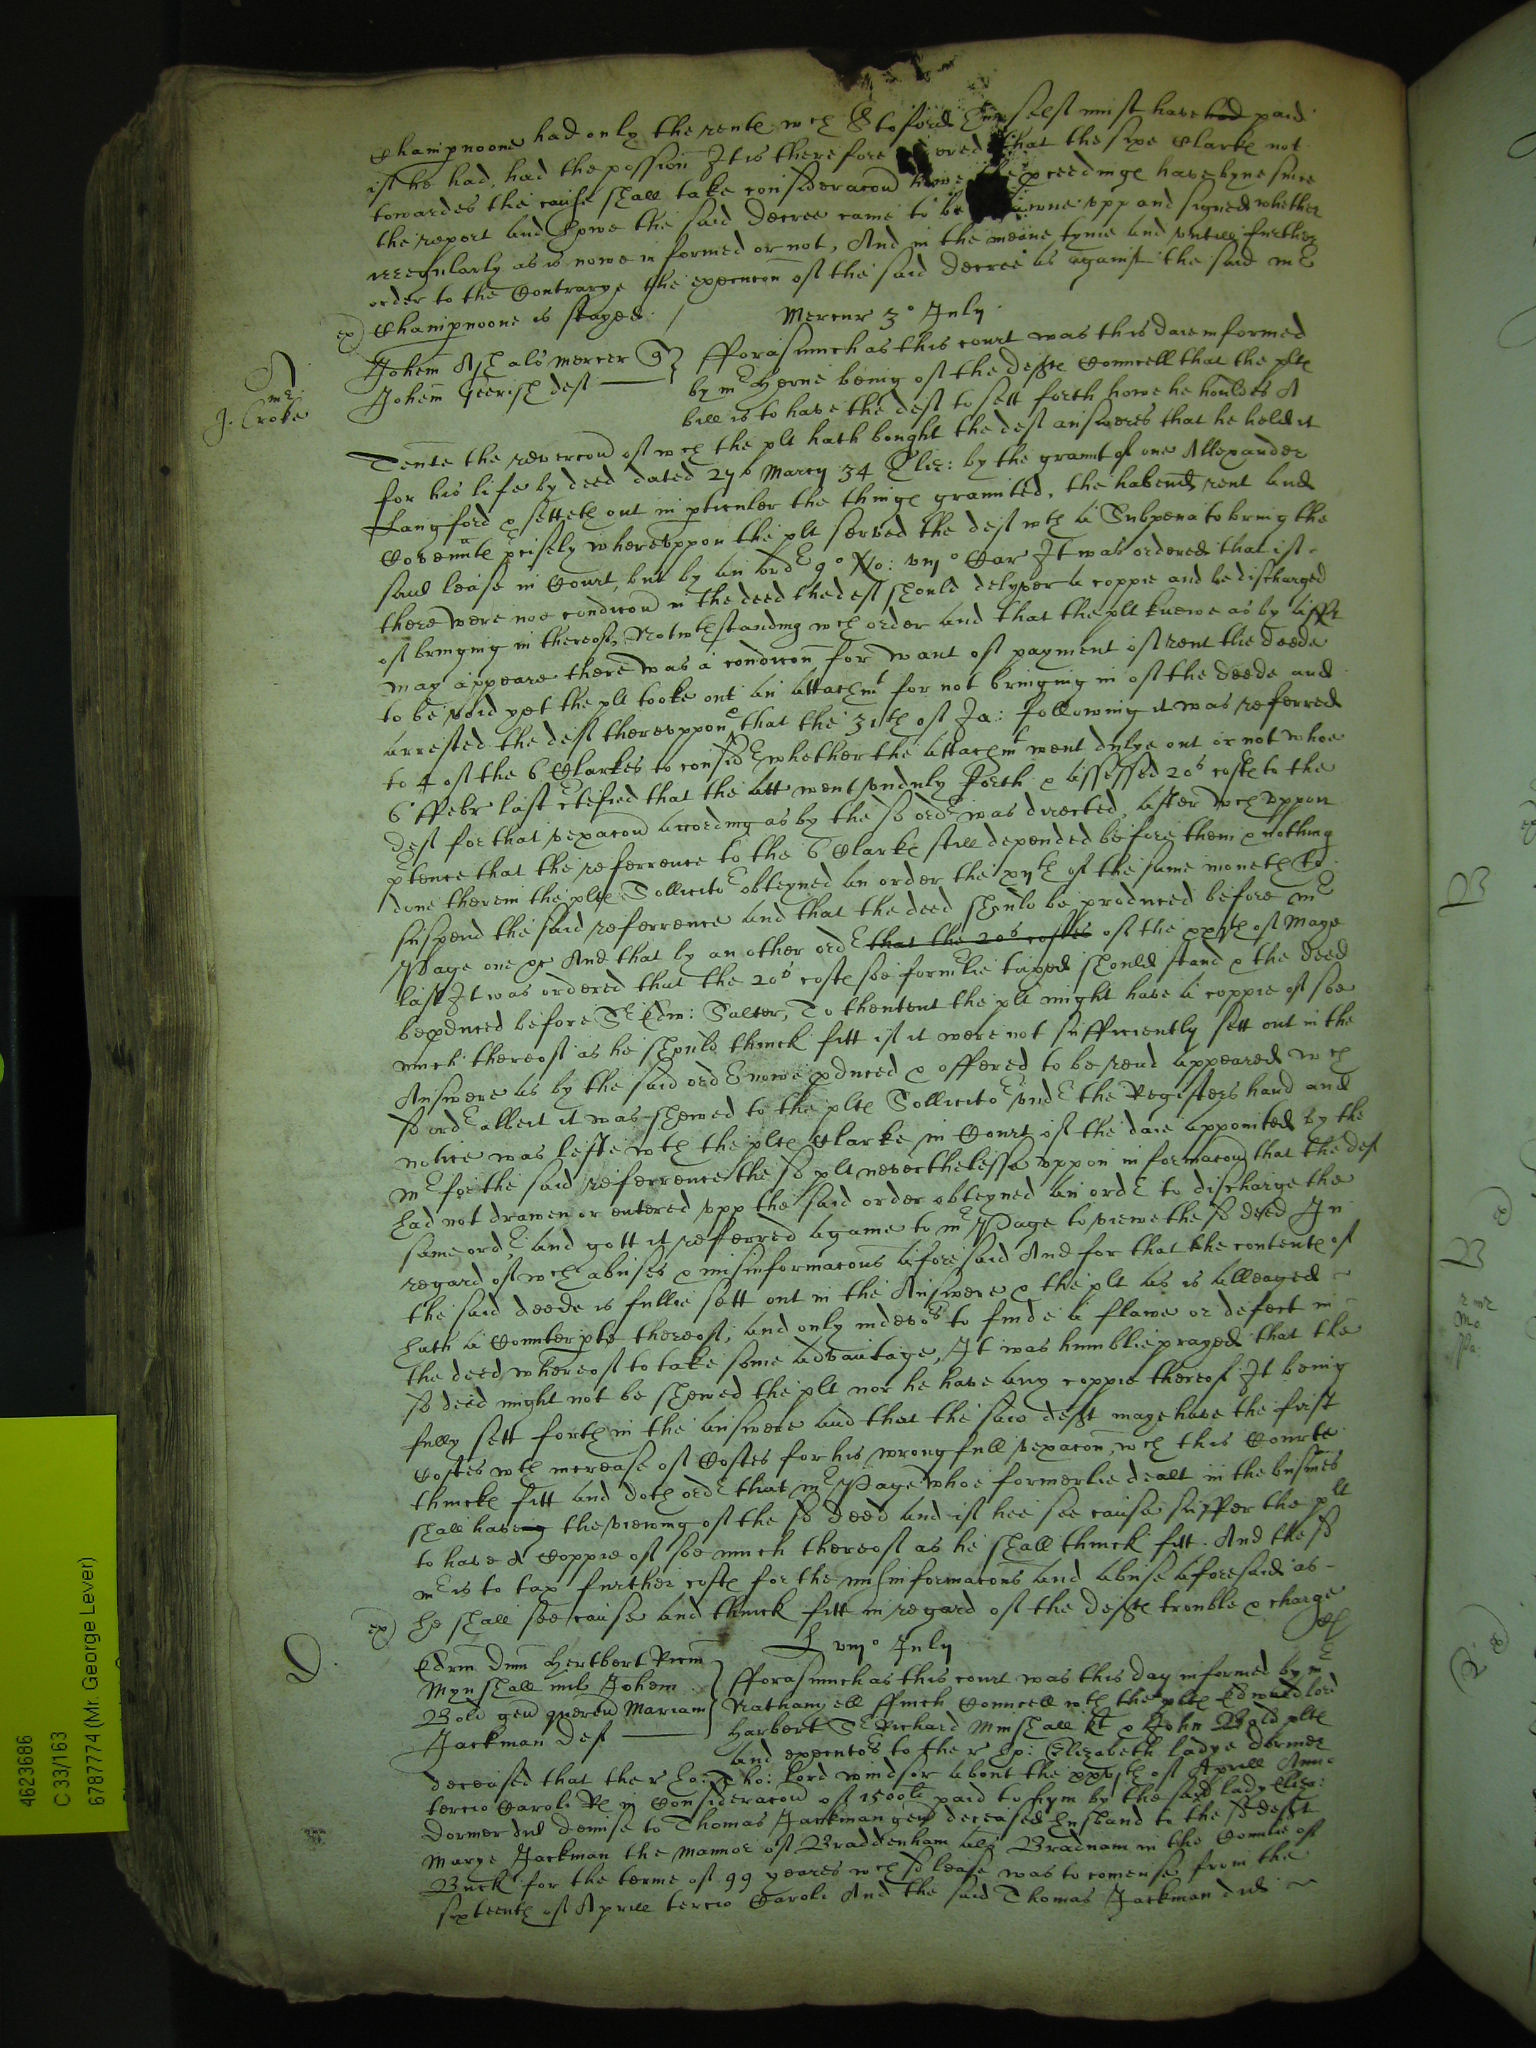 Champnoone had only the rente wch Stoford himselfe must have had paid
if he had, had the possion It is therefore ordered that the sixe Clarke not
towardes the cause shall take consideracon howe the pceedinge have byne since
the report and howe the said decree came to be drawne upp and signed whether
irregularly as is nowe informed or not, And in the meane tyme and untill further
order to the Contrarye the execucon of the said decree as against the said mr
ex) Champnoone is stayed. /
Mercur 3o July
A
mr
J. Croke
Johem Ash als mercer Q
Johem Geerish deft
fforasmuch as this court was this daie informed
by mr Herne being of the defte Councell that the plte
bill is to have the deft to sett forth howe he houldes A
Tente the revercon of wch the plt hath bought the deft answeres that he held it
for his life by deed dated 27o Marcij 34 Eliz: by the graunt of one Allexander
Langford & setteth out in pticuler the thinge graunted, the habend rent and
Covenante pcisely whereuppon the plt served the deft wth a Subpena to bring the
said lease in Court, but by an ordr 9o No: viijo Car It was ordered that if
there were noe condicon in the deed the deft should delyver a coppie and be discharged
of bringing in thereof, Notwthstanding wch order and that the plt knewe as by afft
may appeare there was a condicon for want of payment of rent the deede
to be void yet the plt tooke out an attachmt for not bringing in of the deede and
arrested the deft thereuppon, that the 31th of Ja: following it was referred
to 4 of the 6 Clarkes to considr whether the attachmt went dulye out or not whoe
6 ffebr last ctefied that the att went unduly forth & assessed 20s coste to the
deft for that vexacon according as by the sd ordr was directed, after wch uppon
ptence that the referrence to the 6 Clarke still depended before them & nothing
done therein the plte Sollicitor obteyned an order the xijth of the same moneth to
suspend the said referrence and that the deed should be produced before mr
Page one &c And that by an other ordr that the 20s costes of the xxjth of Maye
last It was ordered that the 20s coste soe formrlie taxed should stand & the deed
be pduced before Sr Edw: Salter, To thentent the plt might have a coppie of soe
much thereof as he should thinck fitt if it were not sufficiently sett out in the
Answere as by the said ordr nowe pduced & offered to be read appeared wch
sd ordr albeit it was shewed to the plte Sollicitor undr the Registers hand and
notice was lefte wth the plte Clarke in Court of the daie appointed by the
mr for the said referrence the sd plt neverthelesse uppon informacon that the deft
had not drawen or entered upp the said order obteyned an ordr to discharge the
same ordr, and gott it referred againe to mr Page to viewe the sd deed In
regard of wch abuses & misinformacons aforesaid And for that the contente of
the said deede is fullie sett out in the Answere & the plt as is alleaged
hath a Counterpte thereof, and only indevors to finde a flawe or defect in
the deed whereof to take some advantage, It was humblie prayed that the
sd deed might not be shewed the plt nor he have any coppie thereof It being
fully sett forth in the answere and that the said deft maye have the first
Costes wth increase of Costes for his wrongfull vexacon, wch this Courte
thincke fitt and doth ordr that mr Page whoe formerlie dealt in the busines
shall haveing the viewing of the sd deed and if hee see cause suffer the plt
to have A Coppie of soe much thereof as he shall thinck fitt. And the sd
mr is to tax further coste for the misinformacons and abuse aforesaid as
ex) he shall see cause and thinck fitt in regard of the defte trouble & charge
D.
viijo July
Edrum Dnm Herbert Ricum
Mynshall mil Johem
Bold gen querend Mariam
Jackman Def
fforasmuch as this court was this day informed by mr
Nathanyell ffinch Councell wth the plte Edward lord
Harbert Sr Richard Minshall kt & John Bold plte
and executors to the r Elizabeth ladye Dormer
deceased that the r ho: Tho: Lord windsor about the xxvjth of Aprill Anno
tercio Caroli Re in Consideracon of 1500li paid to hym by the said lady Eliza:
Dormer did demise to Thomas Jackman gen deceased husband to the sd deft
Marye Jackman the mannor of Braddenham als Bradnam in the Countie of
Buck for the terme of 99 yeares wch sd lease was to comense from the
sixteenth of Aprill tercio Caroli And the said Thomas Jackman did
4623686
C 33/163
6787774 (Mr. George Lever)